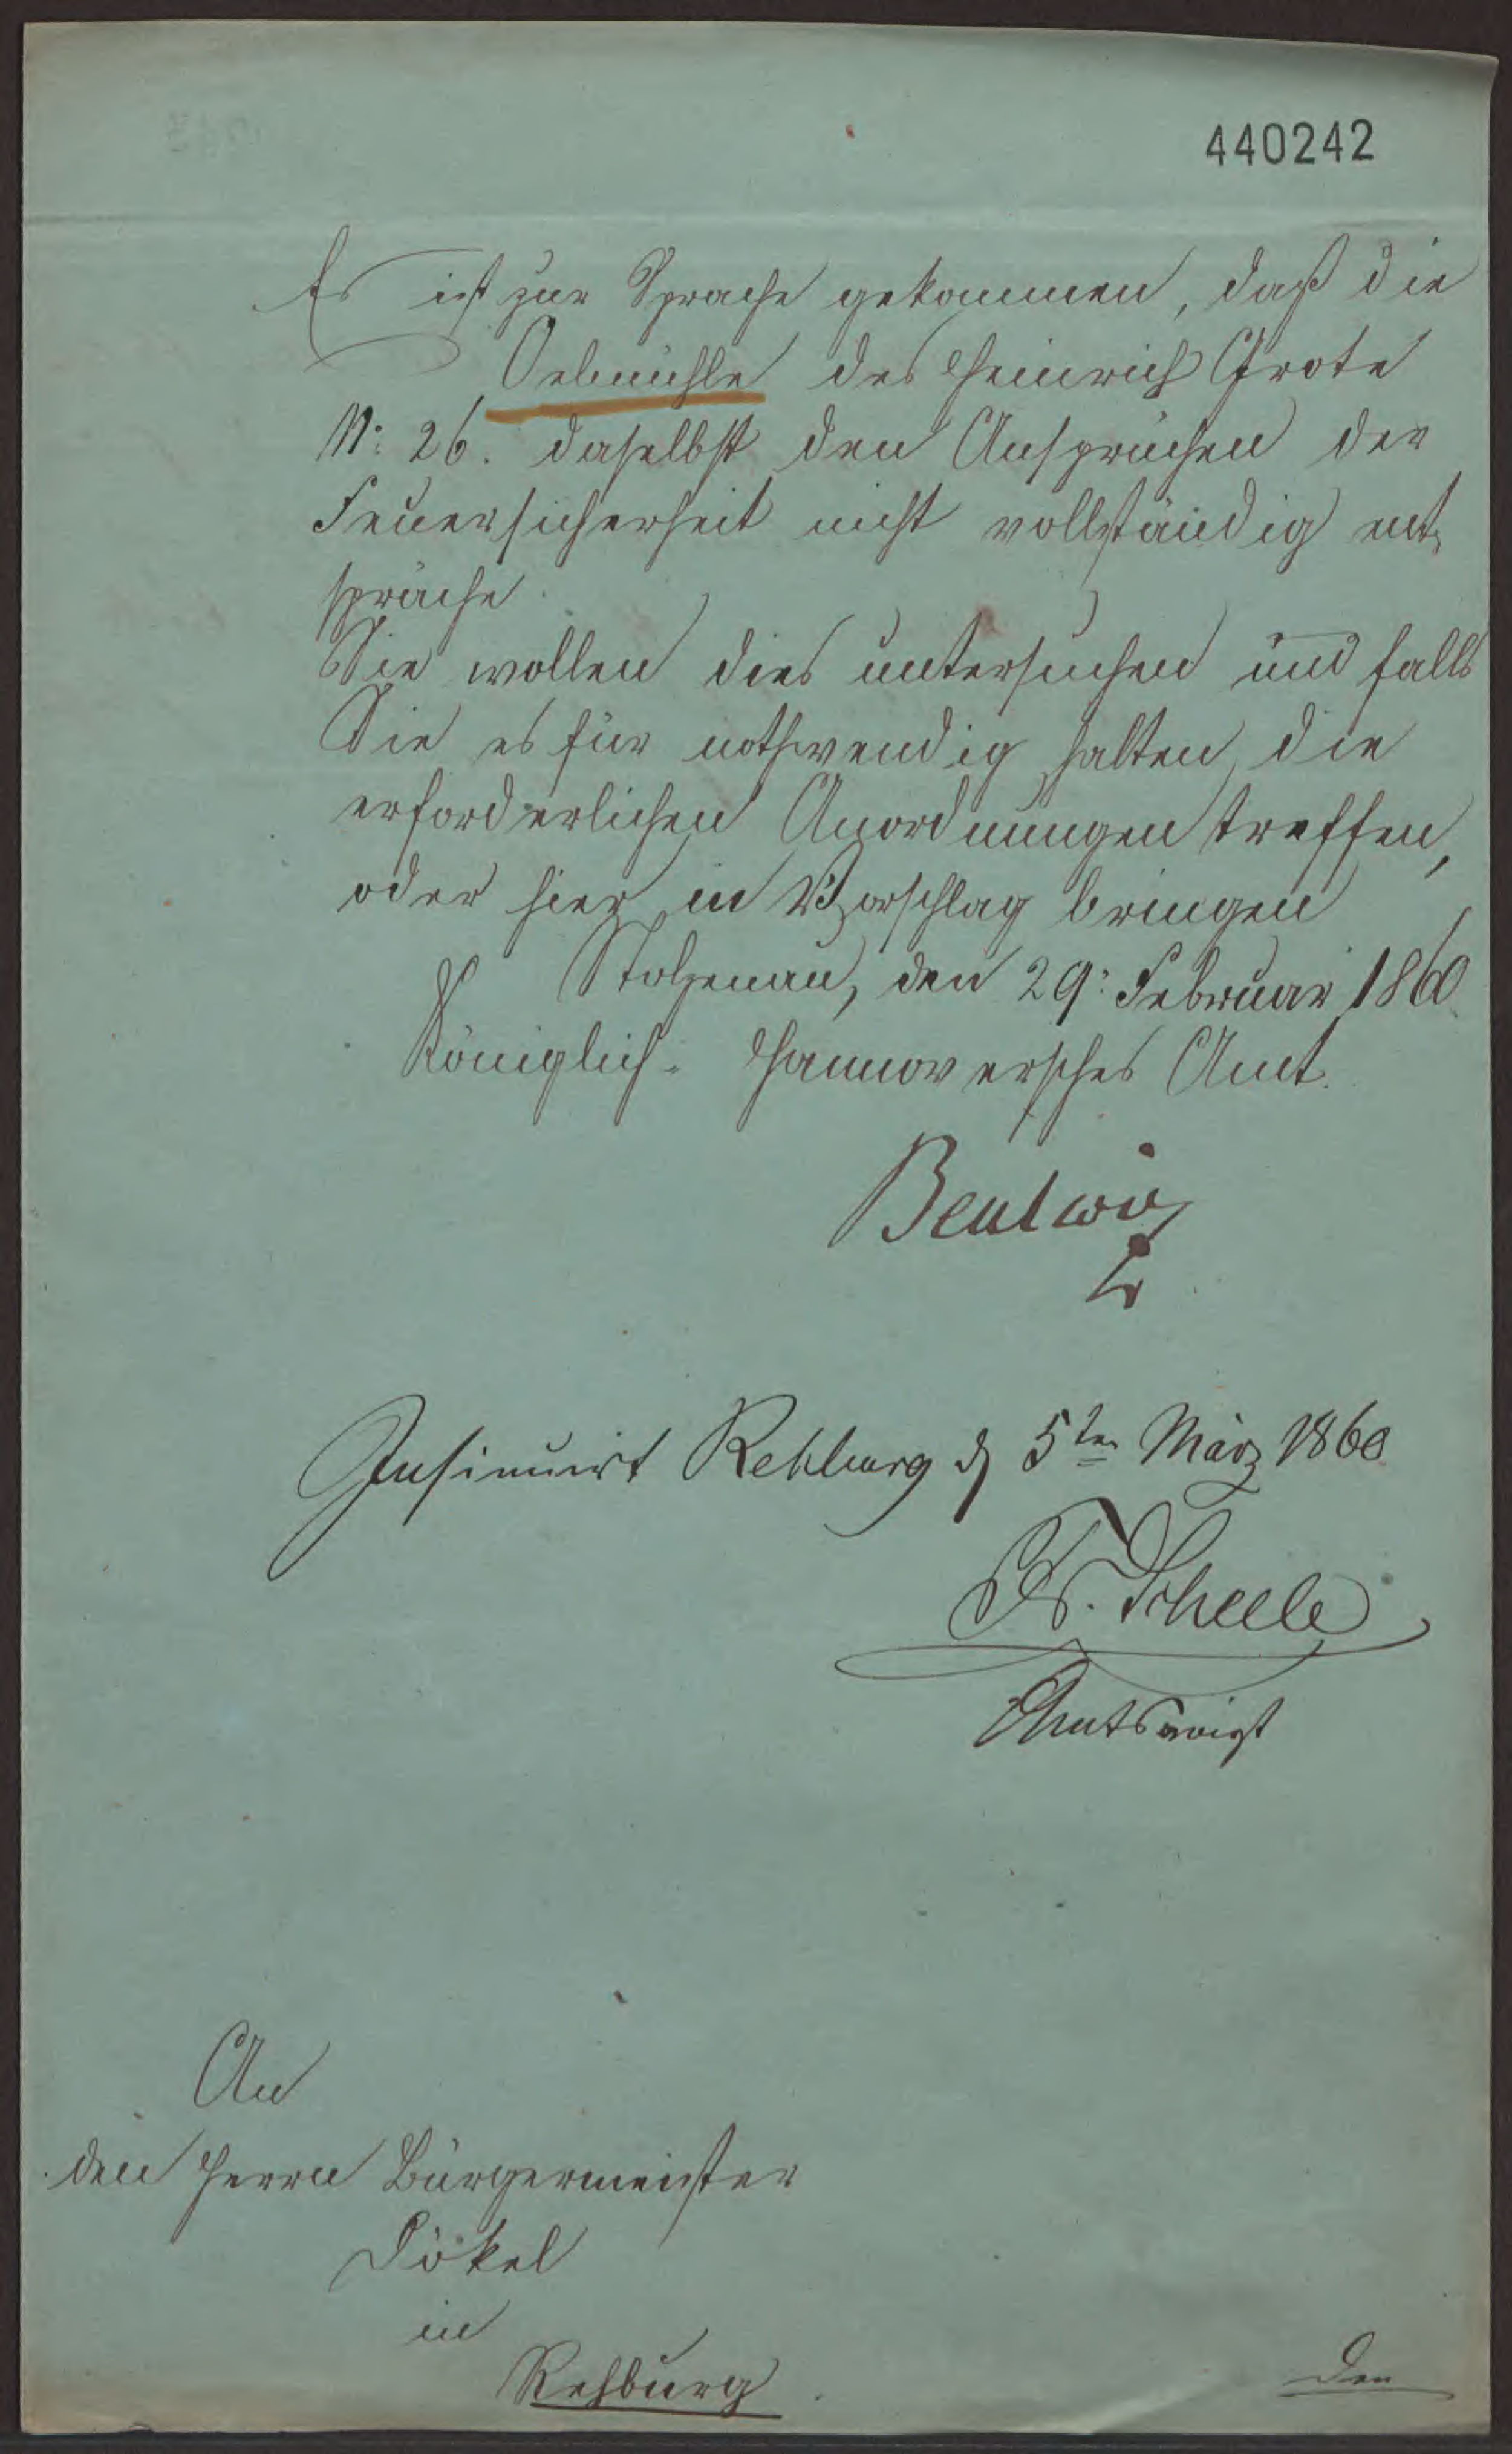 440242
Es ist zur Sprache gekommen, daß die
Oelmühle des Heinrich Grote
N: 26. daselbst den Ansprüchen der
Feuersicherheit nicht vollständig ent,
spräche.
Sie wollen dies untersuchen und falls
Sie es für nothwendig halten, die
erforderlichen Anordnungen treffen,
oder hier in Vorschlag bringen
Stolzenau, den 29: Februar 1860.
Königlich- Hannoversches Amt.
Insinuirt Rehburg d 5ten März 1860
Scheele
Amtsvoigt
An
den Herrn Bürgermeister
Dökel
in
Rehburg.
Den